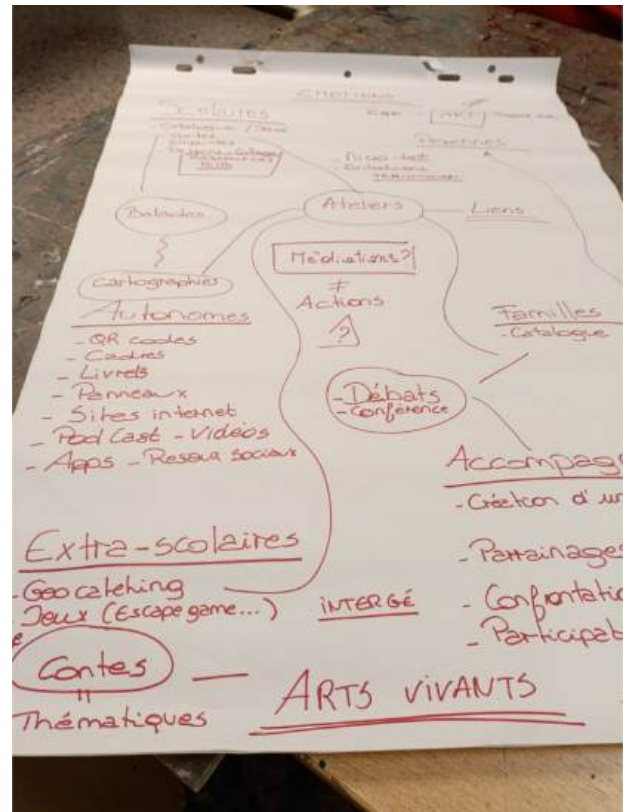 EMOTIONS
SCOLAIRES
ART
- Catalogue / Jeux
Balades
Ateliers
Liens
Médiations?
≠
Actions
?
Cartographies
Autonomes
- QR codes
- Cadres
- Livrets
- Panneaux
- Sites internet
- Pod Cast - Vidéos
- Apps - Reseaux sociaux
Familles
- Catalogue
- Débats
- Conférence
Accompag
- Création d'un
- Parrainages
- Confrontatio
- Participat
Extra-scolaires
- Geocatching
- Jeux (Escape game...)
INTERGÉ
Contes
Thématiques
ARTS VIVANTS